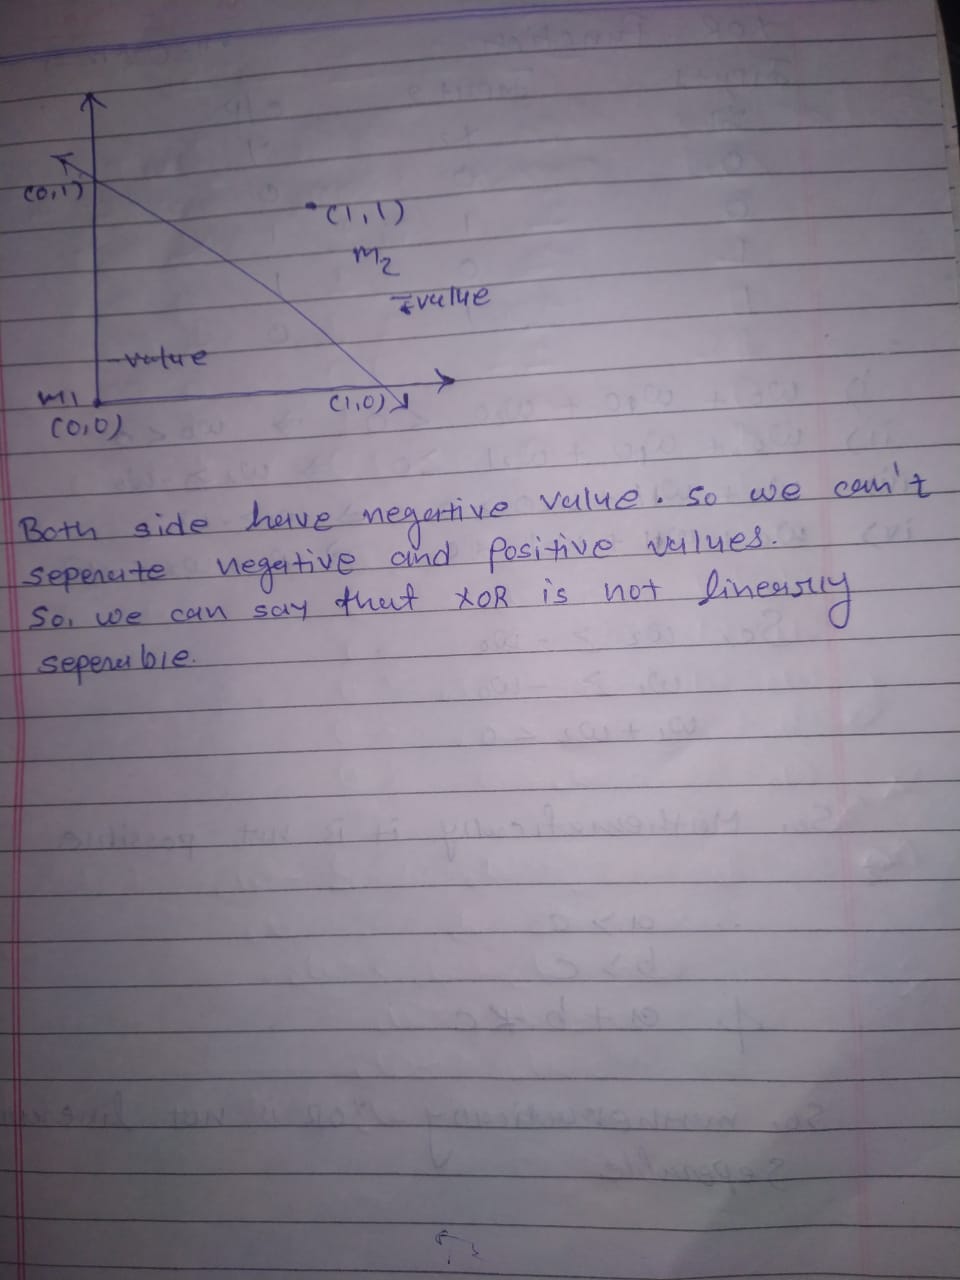 (0,1)
(1,1)
m2
value
-value
m1
(1,0)
(0,0)
Both side have negative value. so we can't
seperate negative and positive values.
So, we can say that XOR is not linearly
seperable.